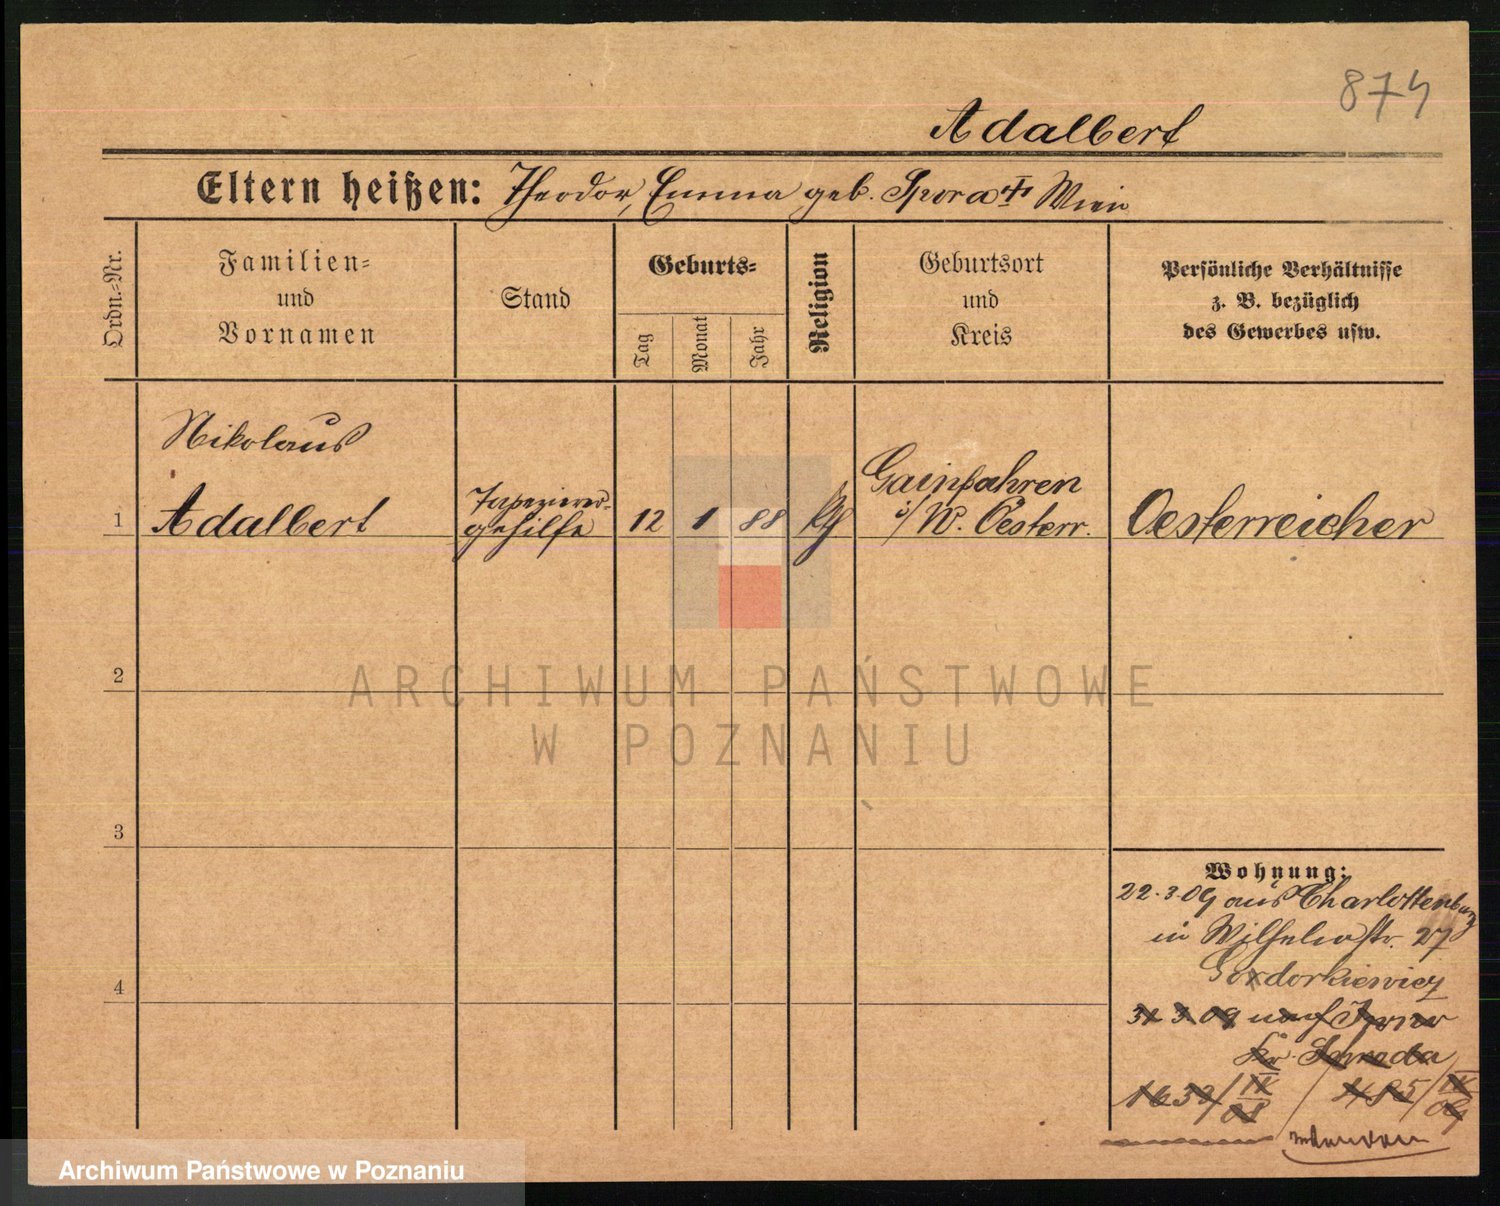 874
Adalbert
Eltern heißen: Theodor, Emma geb. Spora ✝ Wien
Ordn.-Nr.
Familien- und Vornamen
Stand
Geburts-
Tag
Monat
Jahr
Religion
Geburtsort und Kreis
Persönliche Verhältnisse
z. B. bezüglich
des Gewerbes usw.
Nikolaus
1 Adalbert
Tapezierer-
gehilfe
12 1 88
Gainfahren
i/ N. Oesterr.
Oesterreicher
2
3
4
ARCHIWUM PAŃSTWOWE
W POZNANIU
Wohnung:
22.3.09 aus Charlottenburg
in Wilhelmstr. 27
31 3 09 nach
Kr. Schroda
1633/IX 08 / 485/IX 09
Archiwum Państwowe w Poznaniu